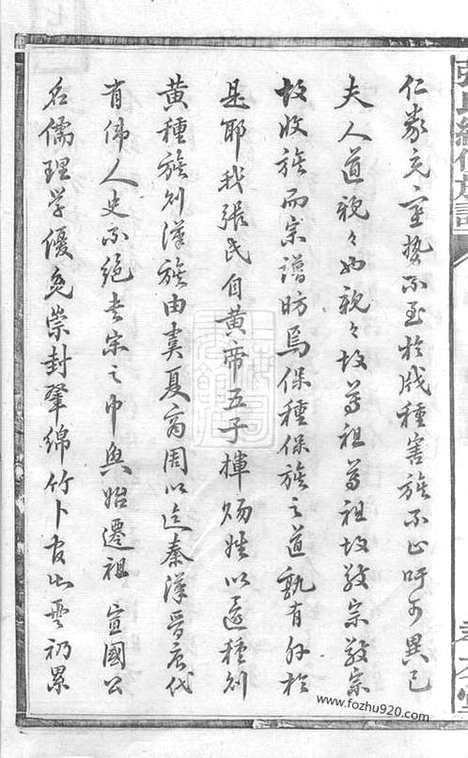 仁義充塞勢不至於戕種害族不止吁可異已
夫人道親々也親々故尊祖尊祖故敬宗敬宗
故收族而宗譜昉焉保種保族之道孰有外於
是耶我張氏自黃帝五子揮賜姓以還種別
黃種族別漢族由虞夏商周以迄秦漢晉唐代
有偉人史不絕書宋之中興始遷祖宣國公
名儒理學優免崇封肇綿竹卜宅
www.fozhu920.com